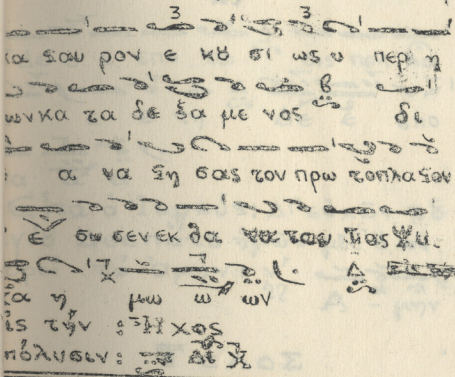 3 3
ια ϛαυ ρον ε κȣ σι ως υ περ η
β
ων κα τα δε ξα με νος δι
α να ϛη σας τον πρω τοπλαϛον
ε σω σεν εκ θα
Δ
α η μω ω ων
ις τήν : Ἦχος
πόλυσιν: Δι